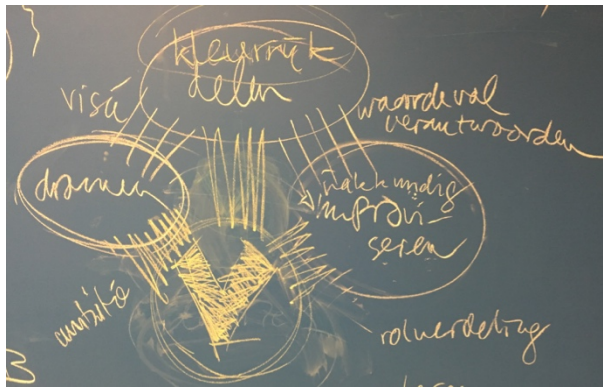 kleurrijk
delen
visie
waardevol
verantwoorden
dromen
vakkundig
improvi-
seren
ambitie
rolverdeling